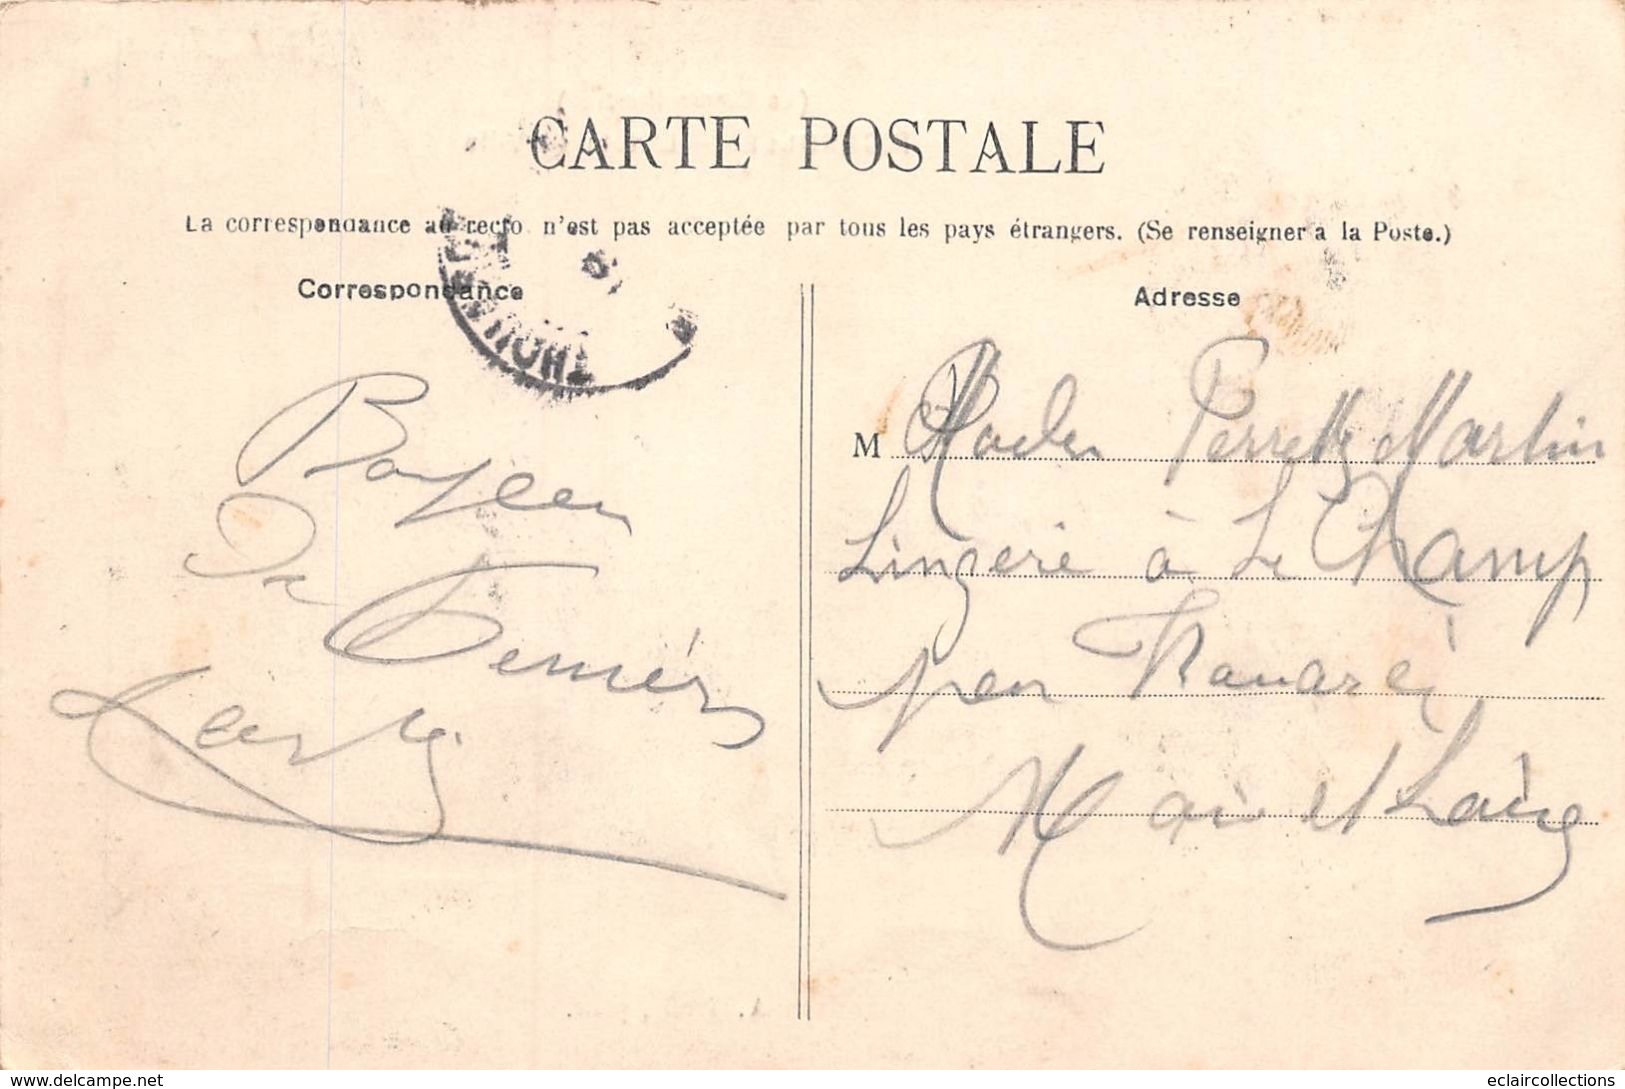 CARTE POSTALE
La correspondance au recto n'est pas acceptée par tous les pays étrangers. (Se renseigner à la Poste.)
Correspondance
THOUAR
Adresse
M Perrette Martin
Lingerie à Le Champ
par Thouarcé
Maine et Loire
De
www.delcampe.net
eclaircollections